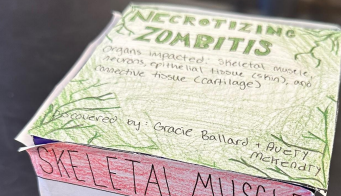 NECROTIZING
ZOMBITIS
Organs impacted: Skeletal muscle,
neurons, epithelial tissue (skin), and
connective tissue (cartilage)
Discovered by: Gracie Ballard + Avery
McKendry
SKELETAL MUSCLE